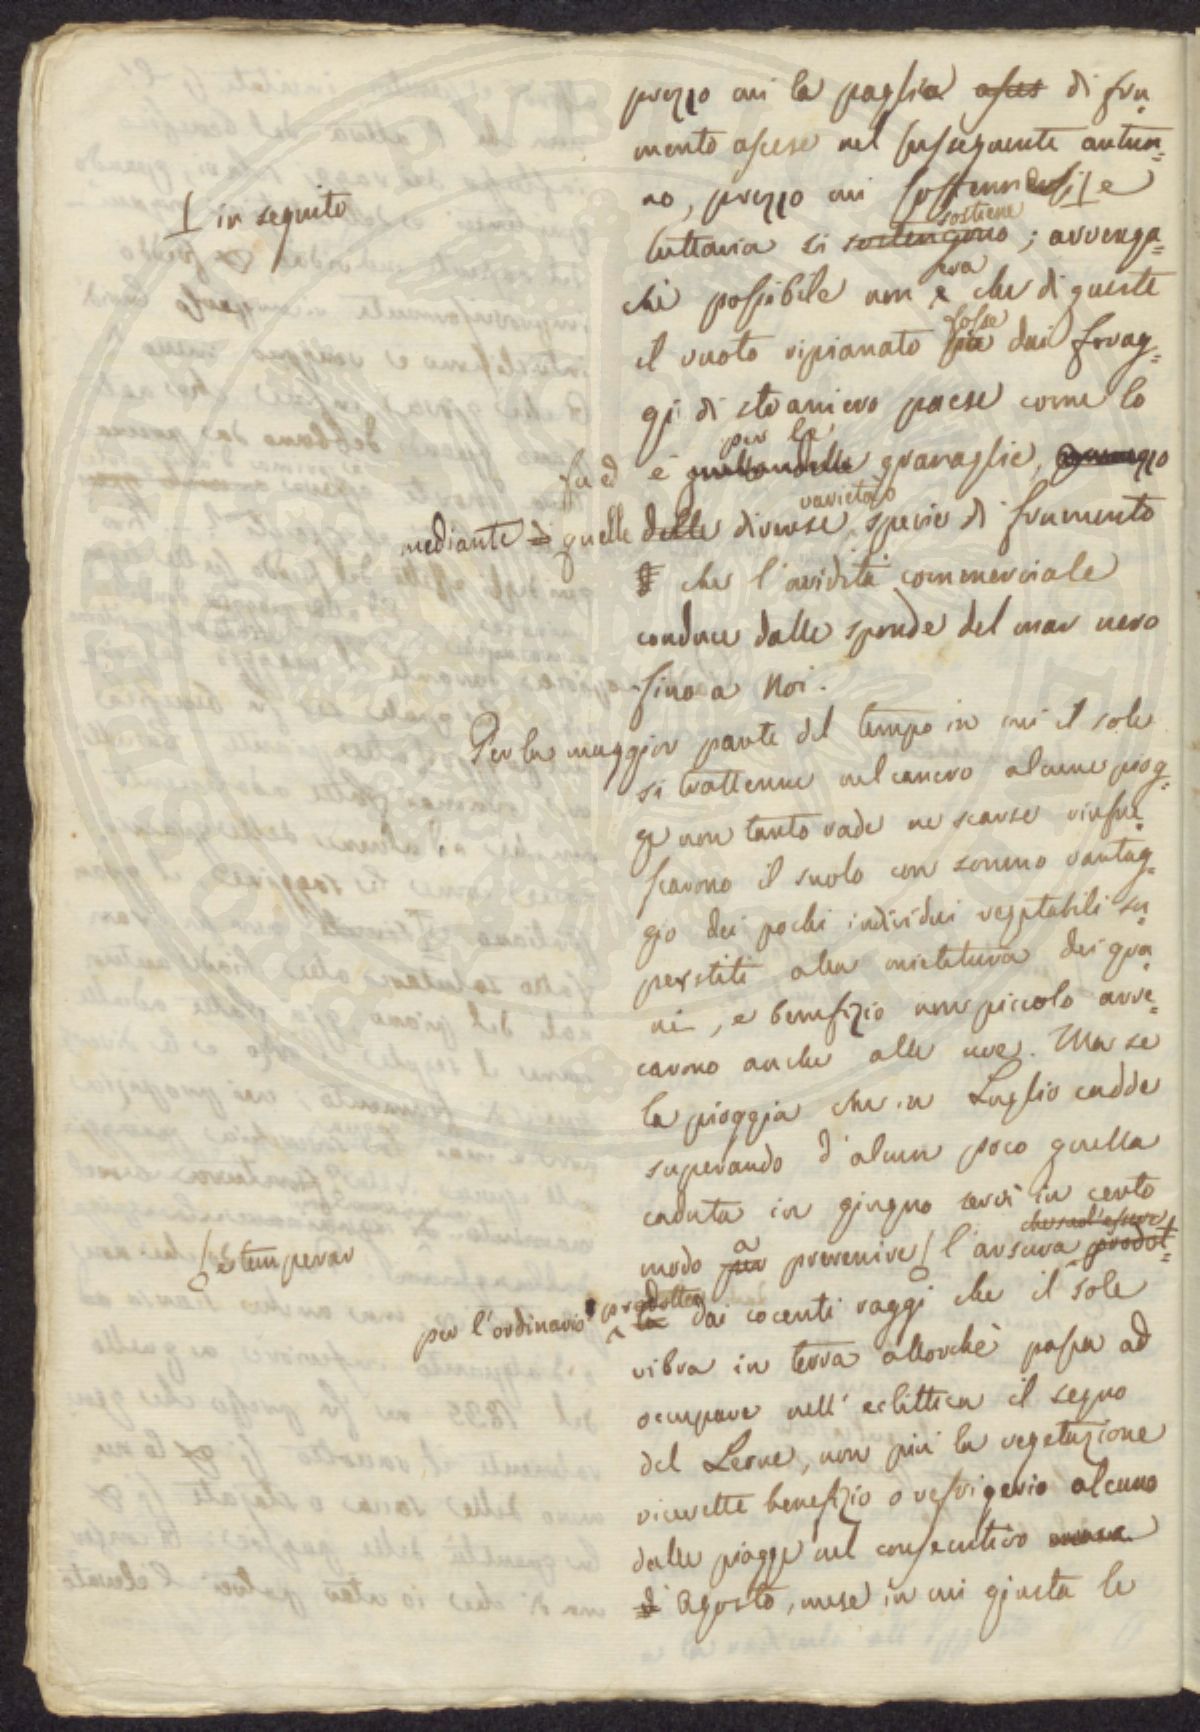 prezzo cui la paglia asces di fru=
mento ascese nel susseguente autun=
no, prezzo cui sostennesi e
⌊ in seguito
sostiene
tuttavia si sostengono ; avvenga=
era
chè possibile non è che di queste
fosse
il vuoto ripianato sia dai forag=
gi di straniero paese come lo
per le
fu ed è granaglie,
varietà o
mediante di quelle delle diverse specie di frumento
che l'avidità commerciale
conduce dalle sponde del mar nero
fino a Noi.
Per la maggior parte del tempo in cui il sole
si trattenne nel cancro alcune piog=
ge non tanto rade ne scarse rinfre=
scarono il suolo con sommo vantag=
gio dei pochi individui vegetabili su=
perstiti alla mietitura dei gra=
ni, e benefizio non piccolo arre=
carono anche alle uve. Ma se
la pioggia che in Luglio cadde
superando d'alcun poco quella
caduta in giugno servì in certo
che suol'essere
a
modo per prevenire l'arsura prodot=
e temperar
prodotta
per l'ordinario ta dai cocenti raggi che il sole
vibra in terra allorchè passa ad
occupare nell'eclittica il segno
del Leone, non più la vegetazione
ricevette benefizio o refrigerio alcuno
dalle piogge nel consecutivo mese
di Agosto, mese in cui giusta le